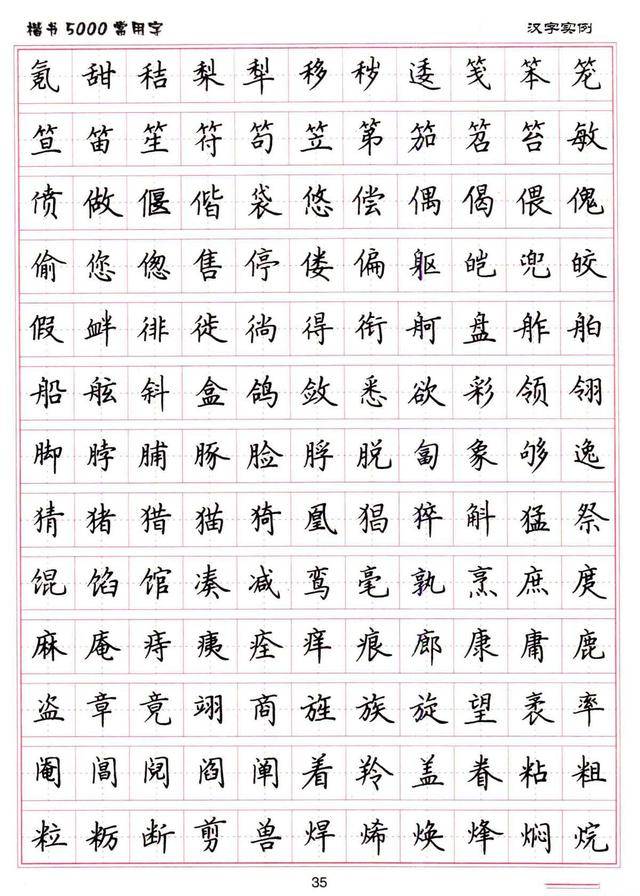 楷书5000常用字 汉字实例
氪甜秸梨犁移秽逶笺笨笼
笪笛笙符笱笠第笳笤笞敏
偾做偃偕袋悠偿偶偈偎傀
偷您偬售停偻偏躯皑兜皎
假衅徘徙徜得衔舸盘舴舶
船舷斜盒鸽敛悉欲彩领翎
脚脖脯豚脸脬脱匐象够逸
猜猪猎猫猗凰猖猝斛猛祭
馄馅馆凑减鸾毫孰烹庶庹
麻庵痔痍痊痒痕廊康庸鹿
盗章竟翊商旌族旋望袤率
阉阊阋阎阐着羚盖眷粘粗
粒粝断剪兽焊烯焕烽焖烷
35